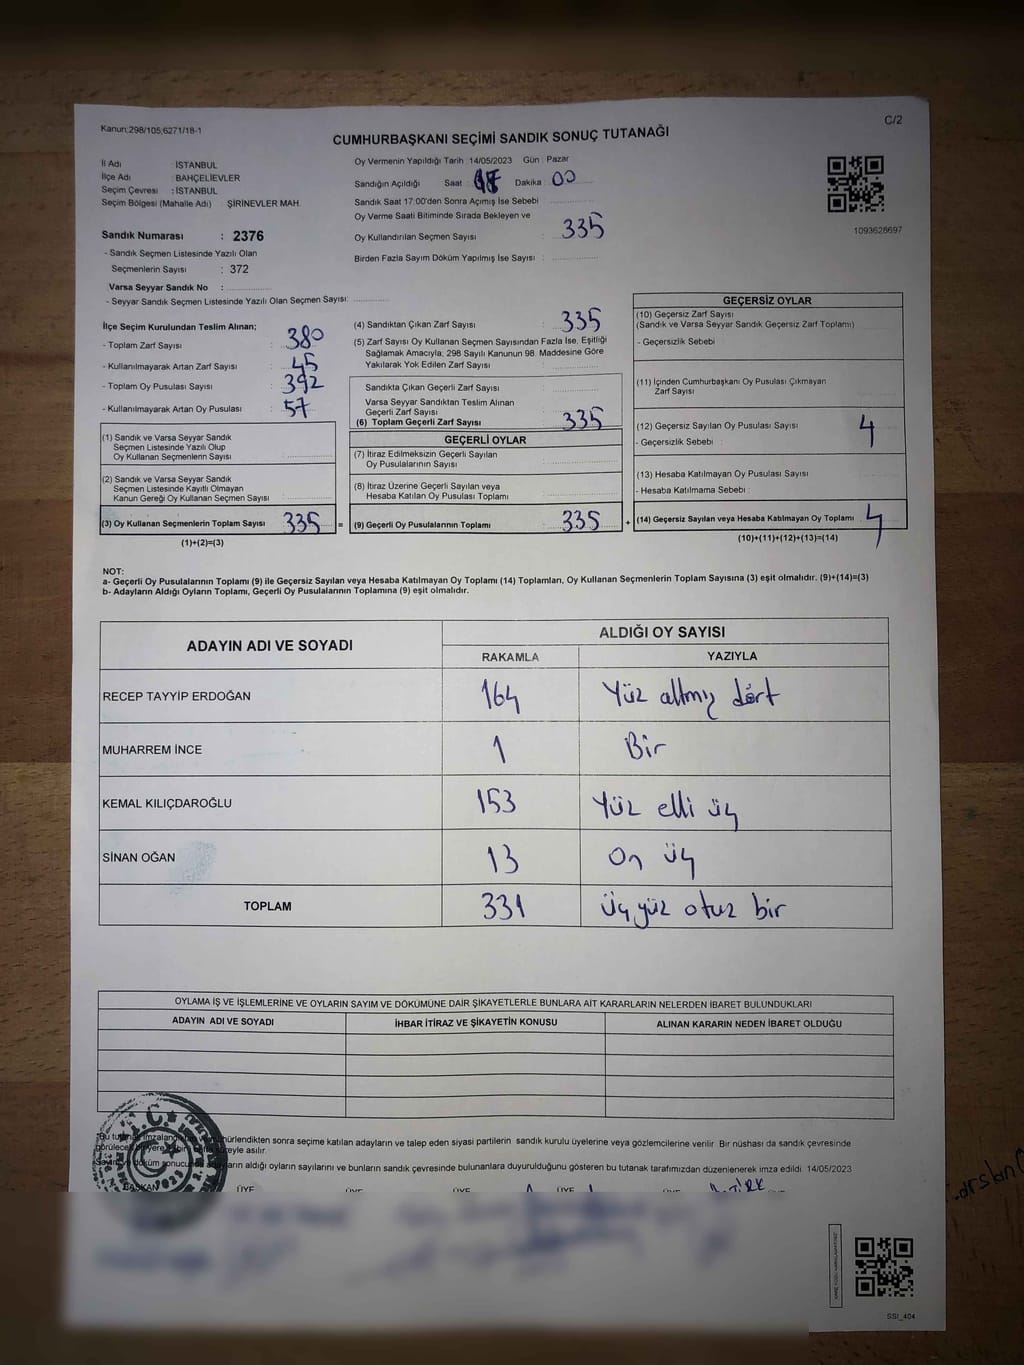 Kanun:298/105,6271/18-1
C/2
CUMHURBAŞKANI SEÇİMİ SANDIK SONUÇ TUTANAĞI
İl Adı : İSTANBUL
İlçe Adı : BAHÇELİEVLER
Seçim Çevresi : İSTANBUL
Seçim Bölgesi (Mahalle Adı) : ŞİRİNEVLER MAH.
Sandık Numarası : 2376
- Sandık Seçmen Listesinde Yazılı Olan
Seçmenlerin Sayısı : 372
Varsa Seyyar Sandık No :
- Seyyar Sandık Seçmen Listesinde Yazılı Olan Seçmen Sayısı:
Oy Vermenin Yapıldığı Tarih : 14/05/2023 Gün : Pazar
Sandığın Açıldığı Saat : Dakika : 00
Sandık Saat 17:00'den Sonra Açımış İse Sebebi :
Oy Verme Saati Bitiminde Sırada Bekleyen ve
Oy Kullandırılan Seçmen Sayısı : 335
Birden Fazla Sayım Döküm Yapılmış İse Sayısı :
1093628697
İlçe Seçim Kurulundan Teslim Alınan;
- Toplam Zarf Sayısı : 380
- Kullanılmayarak Artan Zarf Sayısı : 45
- Toplam Oy Pusulası Sayısı : 392
- Kullanılmayarak Artan Oy Pusulası : 57
(1) Sandık ve Varsa Seyyar Sandık
Seçmen Listesinde Yazılı Olup
Oy Kullanan Seçmenlerin Sayısı :
(2) Sandık ve Varsa Seyyar Sandık
Seçmen Listesinde Kayıtlı Olmayan
Kanun Gereği Oy Kullanan Seçmen Sayısı :
(3) Oy Kullanan Seçmenlerin Toplam Sayısı 335 =
(1)+(2)=(3)
(4) Sandıktan Çıkan Zarf Sayısı : 335
(5) Zarf Sayısı Oy Kullanan Seçmen Sayısından Fazla İse, Eşitliği
Sağlamak Amacıyla; 298 Sayılı Kanunun 98. Maddesine Göre
Yakılarak Yok Edilen Zarf Sayısı :
Sandıkta Çıkan Geçerli Zarf Sayısı :
Varsa Seyyar Sandıktan Teslim Alınan
Geçerli Zarf Sayısı :
(6) Toplam Geçerli Zarf Sayısı : 335
GEÇERLİ OYLAR
(7) İtiraz Edilmeksizin Geçerli Sayılan
Oy Pusulalarının Sayısı :
(8) İtiraz Üzerine Geçerli Sayılan veya
Hesaba Katılan Oy Pusulası Toplamı :
(9) Geçerli Oy Pusulalarının Toplamı : 335 +
GEÇERSİZ OYLAR
(10) Geçersiz Zarf Sayısı :
(Sandık ve Varsa Seyyar Sandık Geçersiz Zarf Toplamı)
- Geçersizlik Sebebi :
(11) İçinden Cumhurbaşkanı Oy Pusulası Çıkmayan
Zarf Sayısı :
(12) Geçersiz Sayılan Oy Pusulası Sayısı : 4
- Geçersizlik Sebebi :
(13) Hesaba Katılmayan Oy Pusulası Sayısı :
- Hesaba Katılmama Sebebi :
(14) Geçersiz Sayılan veya Hesaba Katılmayan Oy Toplamı : 4
(10)+(11)+(12)+(13)=(14)
NOT:
a- Geçerli Oy Pusulalarının Toplamı (9) ile Geçersiz Sayılan veya Hesaba Katılmayan Oy Toplamı (14) Toplamları, Oy Kullanan Seçmenlerin Toplam Sayısına (3) eşit olmalıdır. (9)+(14)=(3)
b- Adayların Aldığı Oyların Toplamı, Geçerli Oy Pusulalarının Toplamına (9) eşit olmalıdır.
ADAYIN ADI VE SOYADI
ALDIĞI OY SAYISI
RAKAMLA YAZIYLA
RECEP TAYYİP ERDOĞAN 164 Yüz altmış dört
MUHARREM İNCE 1 Bir
KEMAL KILIÇDAROĞLU 153 Yüz elli üç
SİNAN OĞAN 13 On üç
TOPLAM 331 üç yüz otuz bir
OYLAMA İŞ VE İŞLEMLERİNE VE OYLARIN SAYIM VE DÖKÜMÜNE DAİR ŞİKAYETLERLE BUNLARA AİT KARARLARIN NELERDEN İBARET BULUNDUKLARI
ADAYIN ADI VE SOYADI İHBAR İTİRAZ VE ŞİKAYETİN KONUSU ALINAN KARARIN NEDEN İBARET OLDUĞU
Bu sonra seçime katılan adayların ve talep eden siyasi partilerin sandık kurulu üyelerine veya gözlemcilerine verilir. Bir nüshası da sandık çevresinde
asılır.
aldığı oyların sayılarını ve bunların sandık çevresinde bulunanlara duyurulduğunu gösteren bu tutanak tarafımızdan düzenlenerek imza edildi. 14/05/2023
BAŞKAN ÜYE ÜYE ÜYE ÜYE ÜYE
SSI_404